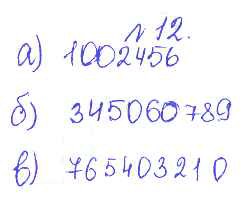 № 12.
а) 1002456
б) 345060789
в) 765403210